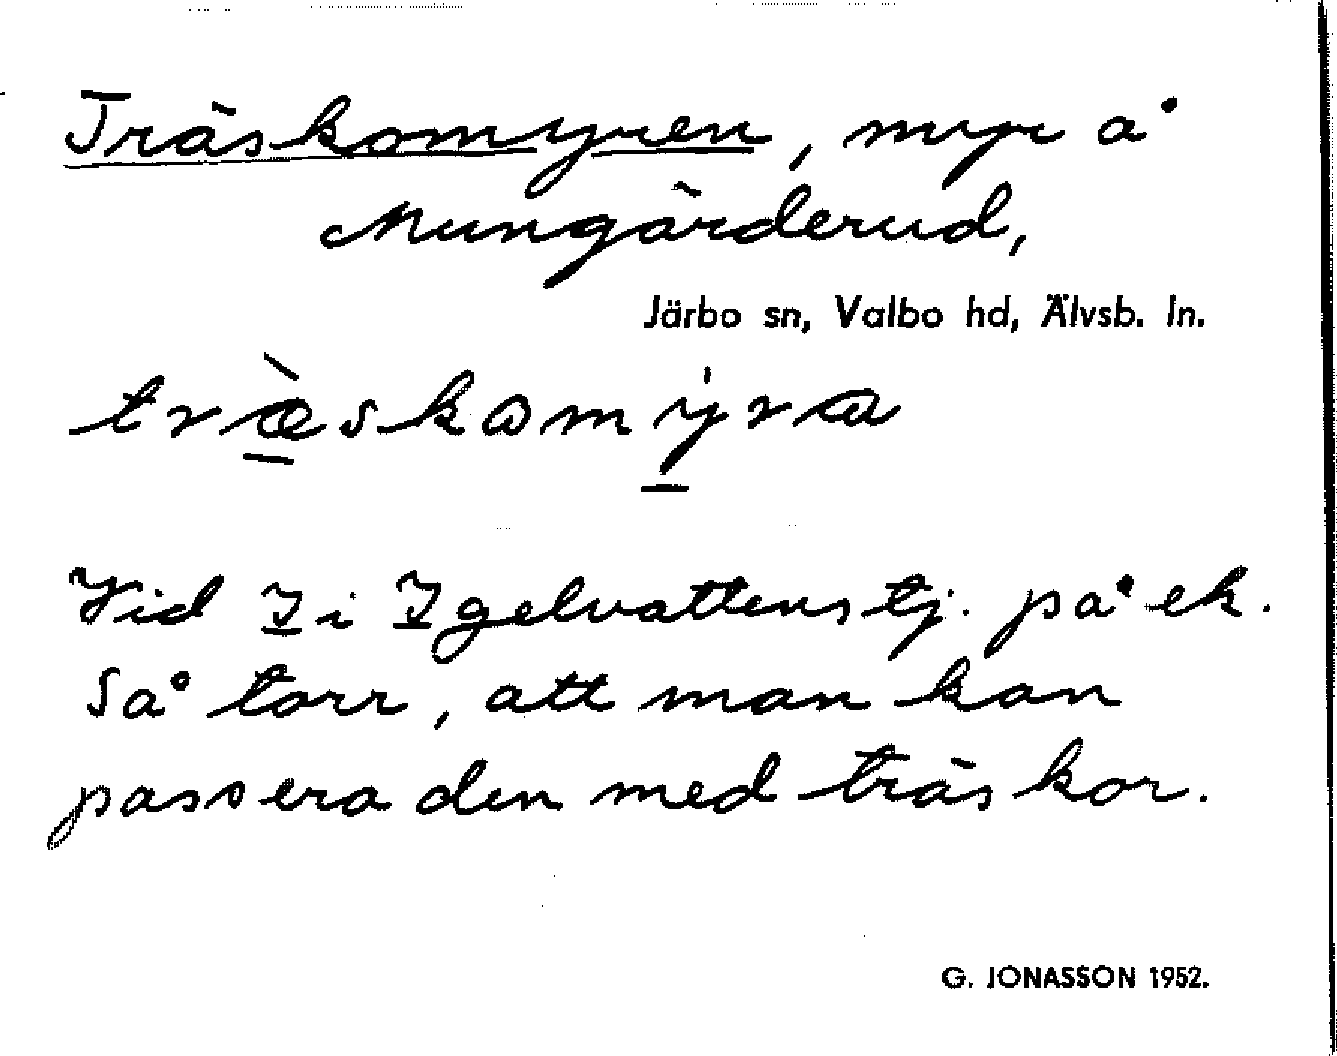 Träskomyren, myr å
Mungärderud,
Järbo sn, Valbo hd, Älvsb. ln.
træ̀skɷmýra
Vid I i Igelvattenstj. på ek.
Så torr, att man kan
passera den med träskor.
G. JONASSON 1952.